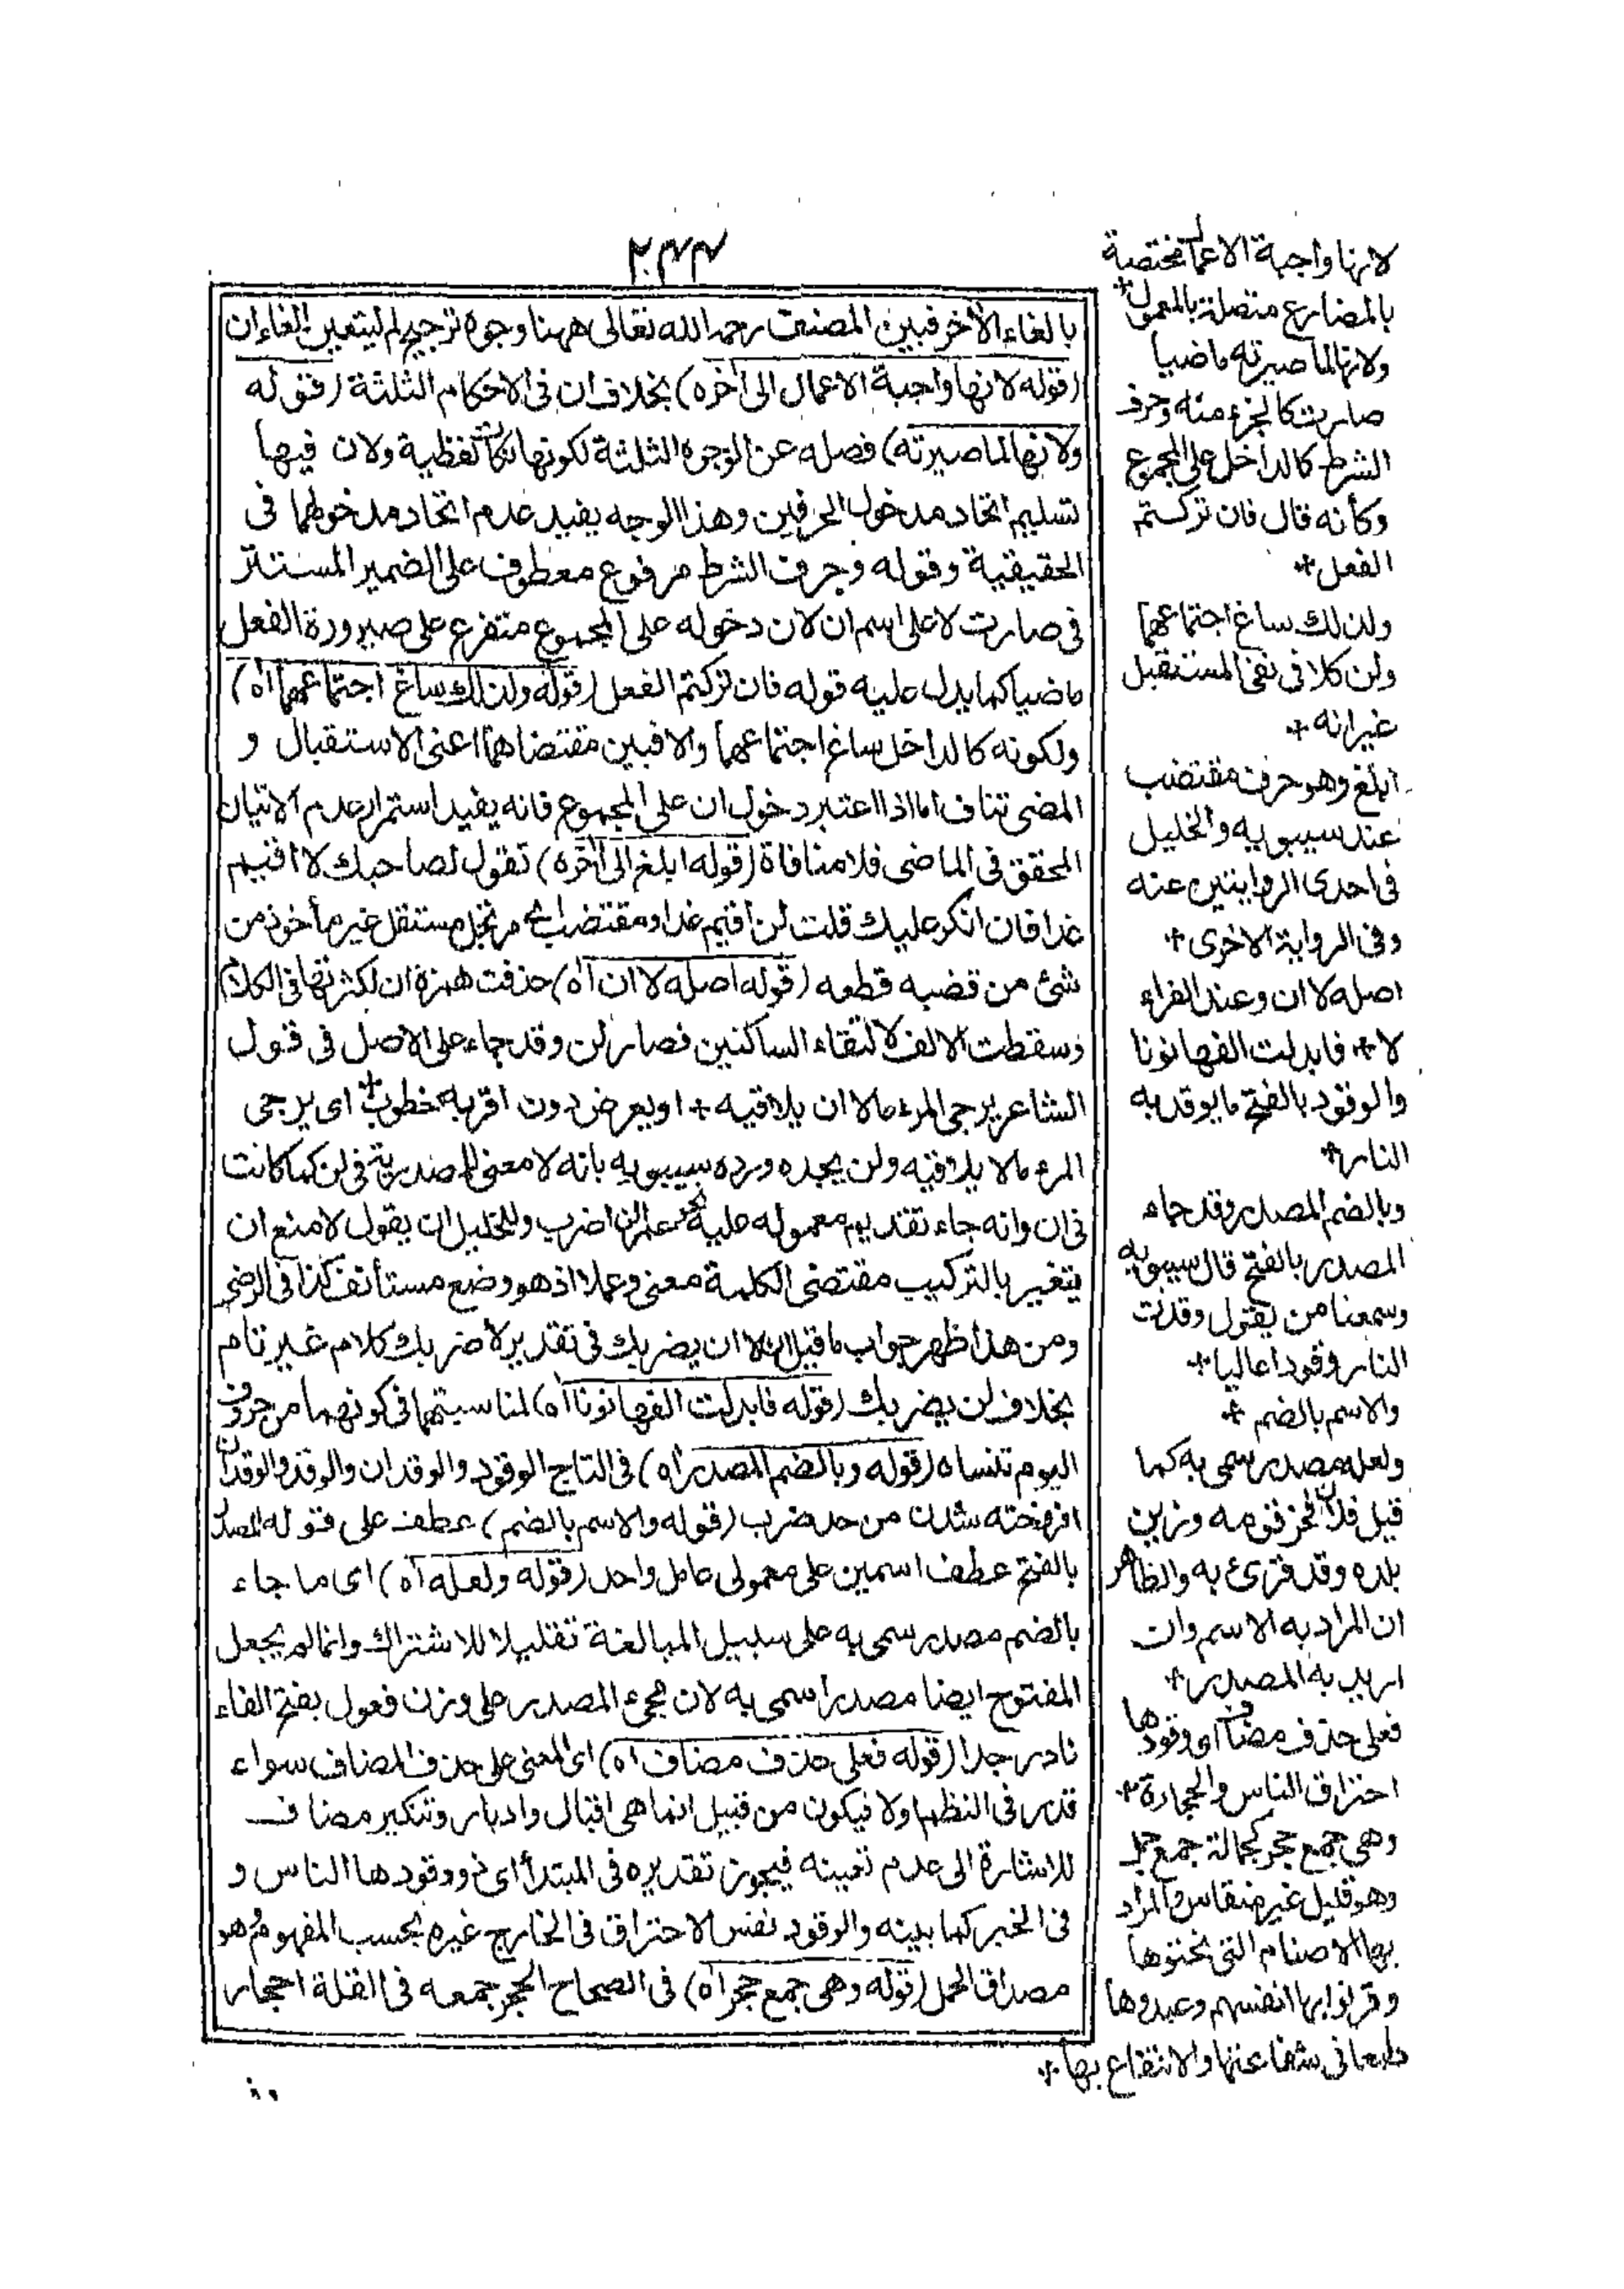 ٢٤٤
بالغاء الآخر فبين المصنف رحمه الله تعالى ههنا وجوه ترجيح لم ليتعين الغاء ان
(قوله لانها واجبة الاعمال الى آخره) بخلاف ان فى الاحكام الثلثة (فقوله
ولانها لما صيرته) فصله عن الوجوه الثلثة لكونها لفظية ولان فيها
تسليم اتحاد مدخول الحرفين وهذا الوجه يفيد عدم اتحاد مدخولهما فى
الحقيقية وقوله وحرف الشرط مرفوع معطوف على الضمير المستتر
فى صارت لا على اسم ان لان دخوله على المجموع متفرع على صيرورة الفعل
ماضيا كما يدل عليه قوله فان تركتم الفعل (قوله ولذلك ساغ اجتماعهما اه)
ولكونه كالداخل ساغ اجتماعهما والا فبين مقتضاهما اعنى الاستقبال و
المضى تناف اما اذا اعتبر دخول ان على المجموع فانه يفيد استمرار عدم الاتيان
المحقق فى الماضى فلا منافاة (قوله ابلغ الى آخره) تقول لصاحبك لا اقيم
غدا فان انكر عليك قلت لن اقيم غدا ومقتضب اى مرتجل مستقل غير مأخوذ من
شئ من قضبه قطعه (قوله اصله لا ان اه) حذفت همزة ان لكثرتها فى الكلام
وسقطت الالف لالتقاء الساكنين فصار لن وقد جاء على الاصل فى قول
الشاعر يرجى المرء مالا ان يلاقيه + او يعرض دون اقربه خطوب + اى يرجى
المرء مالا يلاقيه ولن يجده ورده سيبويه بانه لا معنى للمصدرية فى لن كما كانت
فى ان وانه جاء تقديم معموله عليه نحو عمرا لن اضرب وللخليل ان يقول لا منع ان
يتغير بالتركيب مقتضى الكلمة معنى وعملا اذ هو وضع مستأنف كذا فى الرضى
ومن هذا ظهر جواب ما قيل ان لا ان يضربك فى تقدير لا ضربك كلام غير تام
بخلاف لن يضربك (قوله فابدلت الفها نونا اه) لمناسبتهما فى كونهما من حروف
اليوم تنساه (قوله وبالضم المصدر اه) فى التاج الوقود والوقدان والوقد والوقدان
افروخته شدن من حد ضرب (قوله والاسم بالضم) عطف على قوله المصدر
بالفتح عطف اسمين على معمولى عامل واحد (قوله ولعله اه) اى ما جاء
بالضم مصدر سمى به على سبيل المبالغة تقليلا للاشتراك وانما لم يجعل
المفتوح ايضا مصدرا سمى به لان مجئ المصدر على وزن فعول بفتح الفاء
نادر جدا (قوله فعلى حذف مضاف اه) اى المعنى على حذف المضاف سواء
قدر فى النظم اولا فيكون من قبيل انما هى اقبال وادبار وتنكير مضاف
للاشارة الى عدم تعيينه فيجوز تقديره فى المبتدأ اى ذو وقودها الناس و
فى الخبر كما بينه والوقود نفس الاحتراق فى الخارج غيره بحسب المفهوم هو
مصداق الحمل (قوله وهى جمع حجر اه) فى الصحاح الحجر جمعه فى القلة احجار
لانها واجبة الاعمال مختصة
بالمضارع متصلة بالمعمول +
ولانها لما صيرته ماضيا
صارت كالجزء منه وحرف
الشرط كالداخل على المجموع
وكأنه قال فان تركتم
الفعل +
ولذلك ساغ اجتماعهما
ولن كلا فى نفى المستقبل
غير انه +
ابلغ وهو حرف مقتضب
عند سيبويه والخليل
فى احدى الروايتين عنه
وفى الرواية الاخرى +
اصله لا ان وعند الفراء
لا + فابدلت الفها نونا
والوقود بالفتح ما يوقد به
النار +
وبالضم المصدر وقد جاء
المصدر بالفتح قال سيبويه
وسمعنا من يقول وقدت
النار وقودا عاليا +
والاسم بالضم +
ولعله مصدر سمى به كما
قيل فلان فخر قومه وزين
بلده وقد قرئ به والظاهر
ان المراد به الاسم وان
اريد به المصدر +
فعلى حذف مضاف اى وقودها
احتراق الناس والحجارة +
وهى جمع حجر كجمالة جمع جمل
وهو قليل غير منقاس والمراد
بها الاصنام التى نحتوها
وقرنوا بها انفسهم وعبدوها
طمعا فى شفاعتها والانتفاع بها +